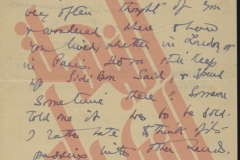 very often thought of you
& wondered where & how
you lived, whether in London or
in Paris. Do you still keep
up Sidi Bou Said & spend
Some time there? Someone
told me it was to be sold.
I rather hate to think of its
passing into other hands.